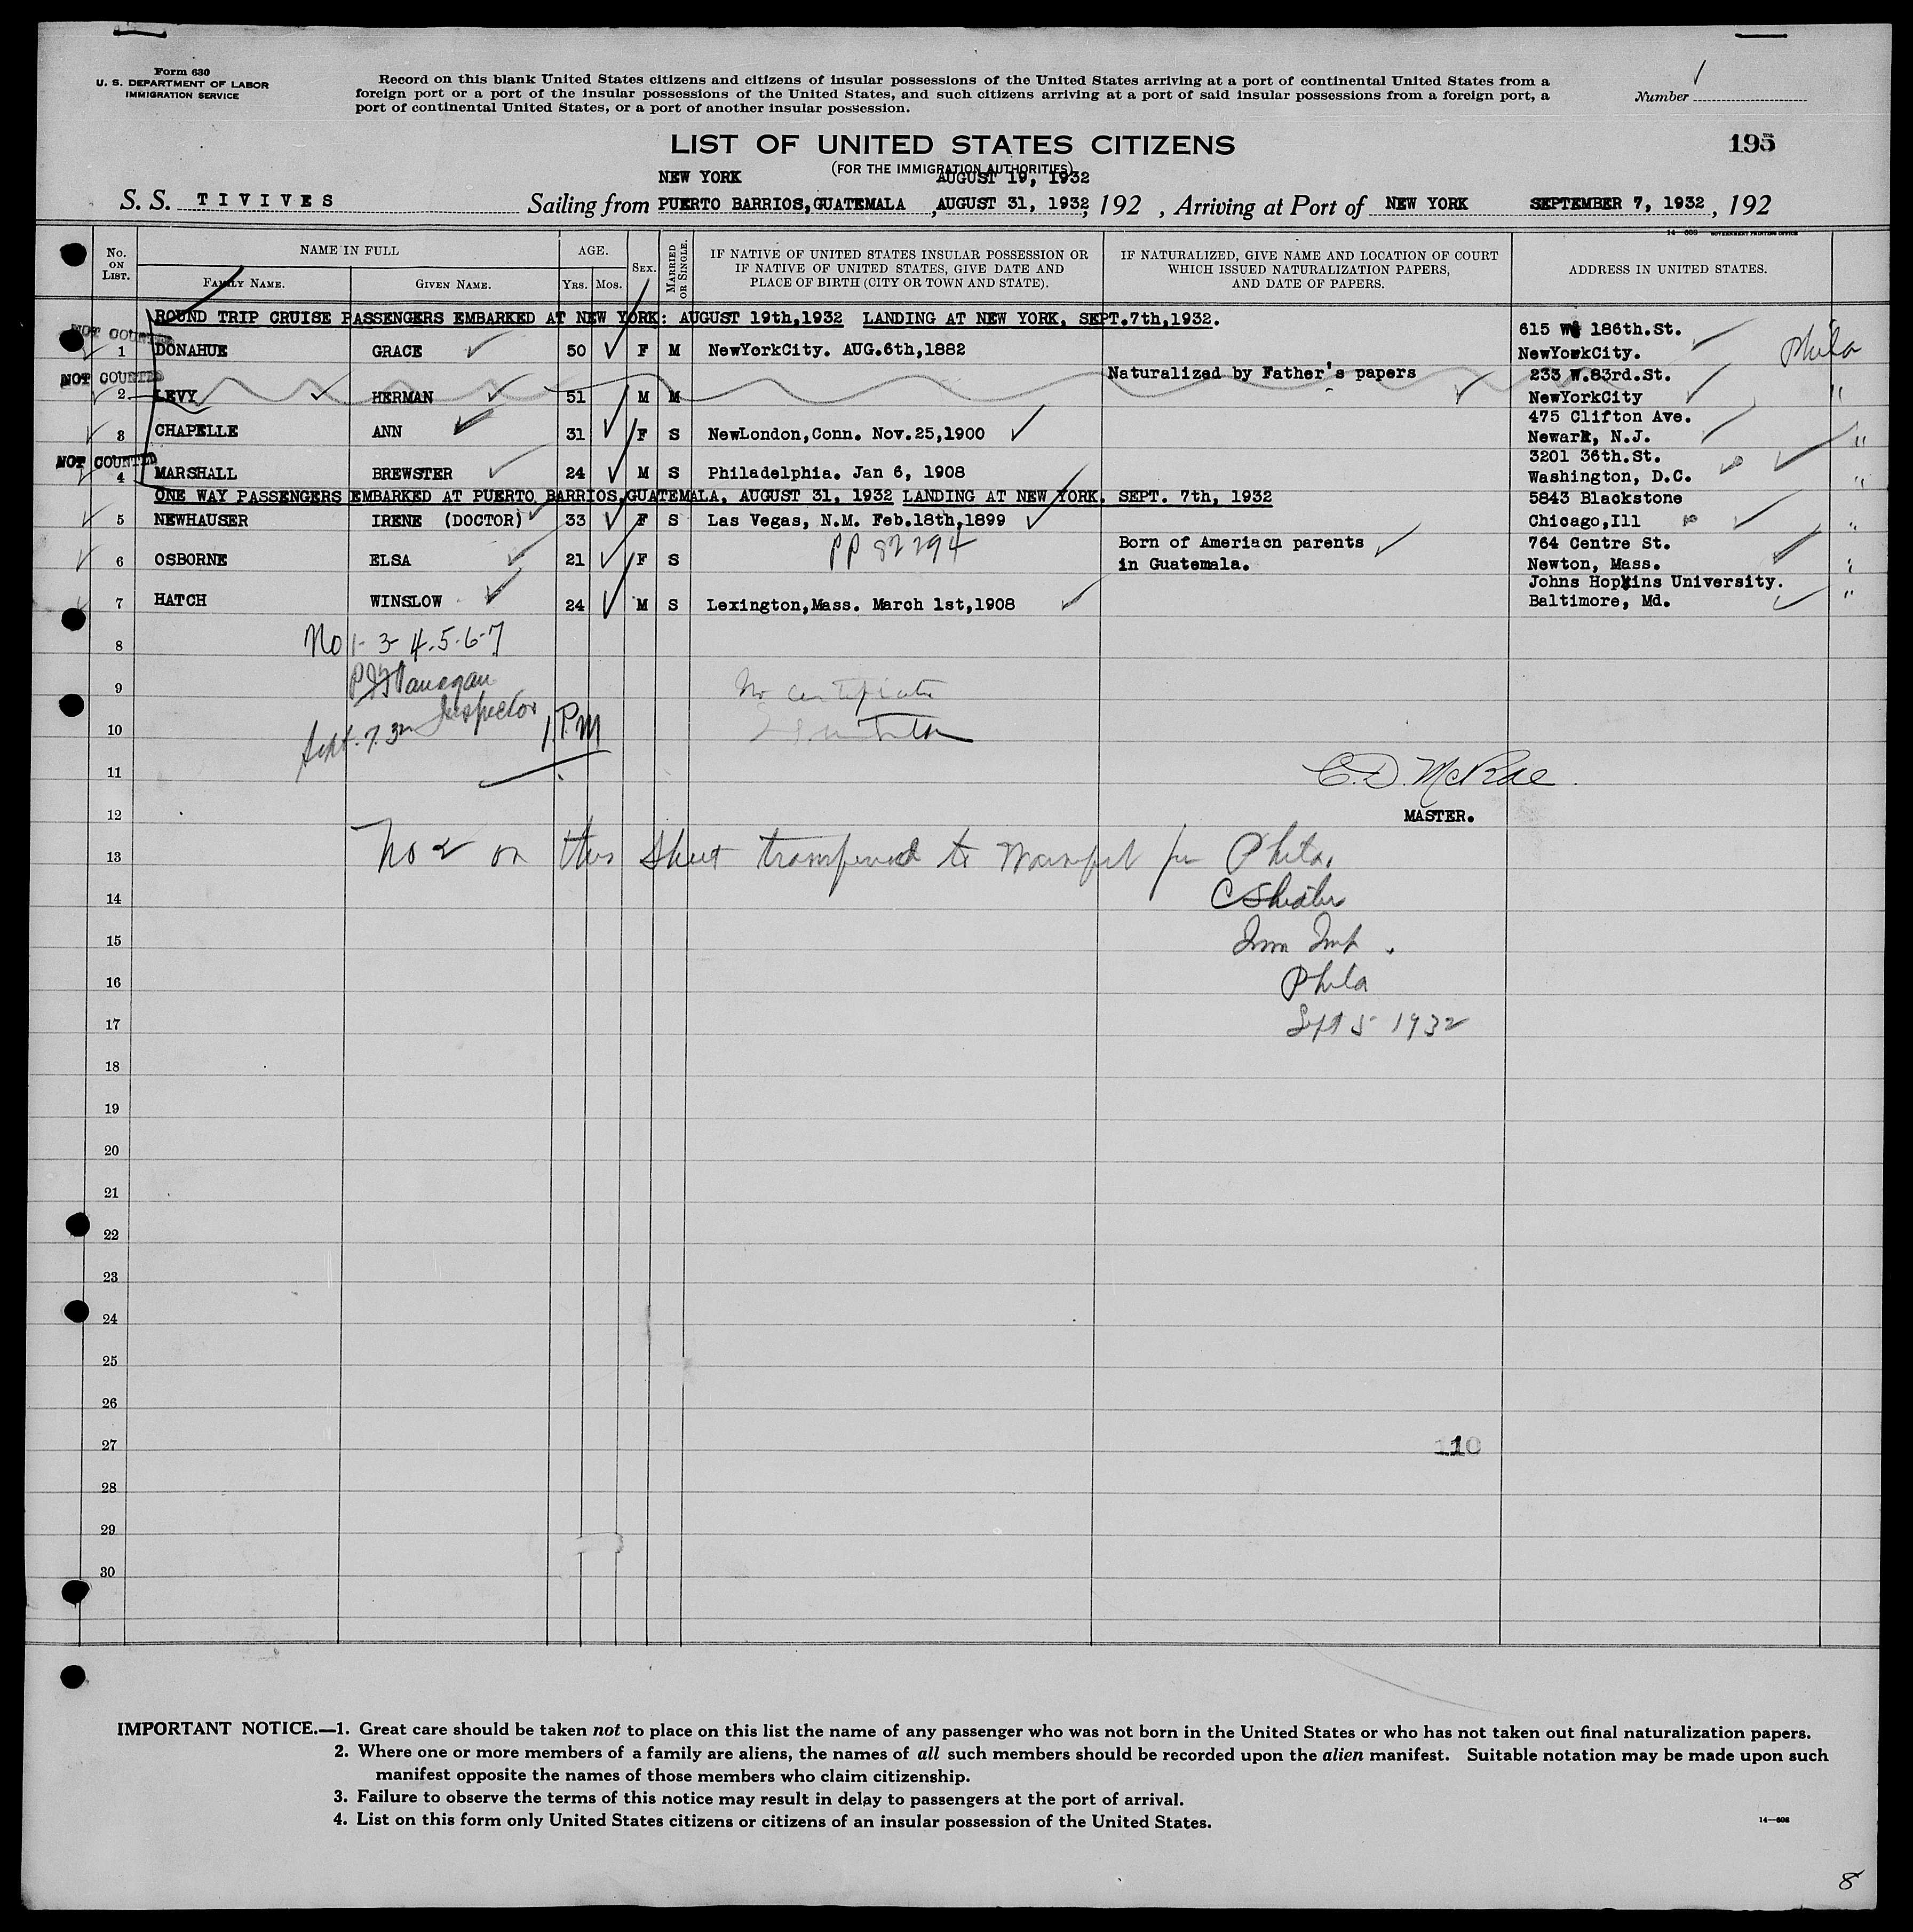 Form 630
U. S. DEPARTMENT OF LABOR
IMMIGRATION SERVICE
Record on this blank United States citizens and citizens of insular possessions of the United States arriving at a port of continental United States from a
foreign port or a port of the insular possessions of the United States, and such citizens arriving at a port of said insular possessions from a foreign port, a
port of continental United States, or a port of another insular possession.
Number
195
LIST OF UNITED STATES CITIZENS
(FOR THE IMMIGRATION AUTHORITIES)
NEW YORK AUGUST 19, 1932
S. S. TIVIVES Sailing from PUERTO BARRIOS, GUATEMALA, AUGUST 31, 1932, 192 , Arriving at Port of NEW YORK SEPTEMBER 7, 1932, 192
14—608 GOVERNMENT PRINTING OFFICE
No. ON LIST. NAME IN FULL FAMILY NAME. GIVEN NAME. AGE. Yrs. Mos. SEX. MARRIED OR SINGLE. IF NATIVE OF UNITED STATES INSULAR POSSESSION OR IF NATIVE OF UNITED STATES, GIVE DATE AND PLACE OF BIRTH (CITY OR TOWN AND STATE). IF NATURALIZED, GIVE NAME AND LOCATION OF COURT WHICH ISSUED NATURALIZATION PAPERS, AND DATE OF PAPERS. ADDRESS IN UNITED STATES.
ROUND TRIP CRUISE PASSENGERS EMBARKED AT NEW YORK: AUGUST 19th,1932 LANDING AT NEW YORK, SEPT.7th,1932.
NOT COUNTED 615 W 186th.St.
1 DONAHUE GRACE 50 F M NewYorkCity. AUG.6th,1882 NewYorkCity. Phila
NOT COUNTED Naturalized by Father's papers 233 W.83rd.St.
2 LEVY HERMAN 51 M M NewYorkCity "
475 Clifton Ave.
3 CHAPELLE ANN 31 F S NewLondon,Conn. Nov.25,1900 Newark, N.J. "
NOT COUNTED 3201 36th.St.
4 MARSHALL BREWSTER 24 M S Philadelphia. Jan 6, 1908 Washington, D.C. "
ONE WAY PASSENGERS EMBARKED AT PUERTO BARRIOS,GUATEMALA, AUGUST 31, 1932 LANDING AT NEW YORK, SEPT. 7th, 1932
5843 Blackstone
5 NEWHAUSER IRENE (DOCTOR) 33 F S Las Vegas, N.M. Feb.18th,1899 Chicago,Ill "
PP 82294 Born of Ameriacn parents 764 Centre St.
6 OSBORNE ELSA 21 F S in Guatemala. Newton, Mass. "
Johns Hopkins University.
7 HATCH WINSLOW 24 M S Lexington,Mass. March 1st,1908 Baltimore, Md. "
8 No 1-3-4.5.6-7
9 Flanagan No certificate
Inspector
10 Sept. 7. 32 1 P.M
11 C.D. McRae.
12 MASTER.
13 No 2 on this sheet transferred to manifest for Phila.
14
15 Imm Insp.
16 Phila
17 Sept 5 1932
18
19
20
21
22
23
24
25
26
27 110
28
29
30
IMPORTANT NOTICE.—1. Great care should be taken not to place on this list the name of any passenger who was not born in the United States or who has not taken out final naturalization papers.
2. Where one or more members of a family are aliens, the names of all such members should be recorded upon the alien manifest. Suitable notation may be made upon such
manifest opposite the names of those members who claim citizenship.
3. Failure to observe the terms of this notice may result in delay to passengers at the port of arrival.
4. List on this form only United States citizens or citizens of an insular possession of the United States.
14—608
8